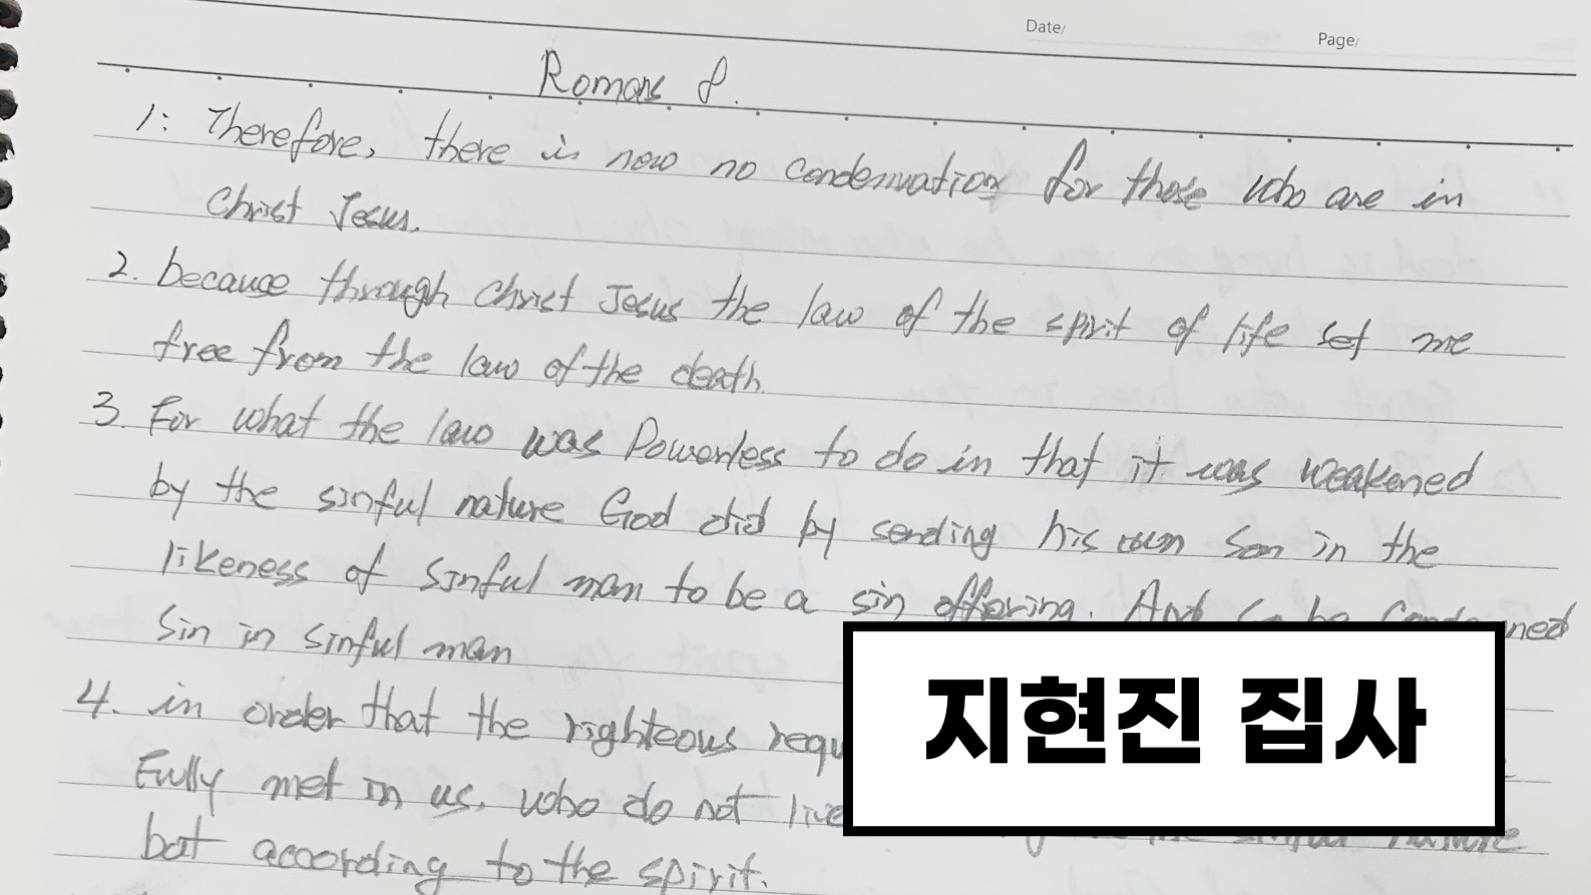 Date/
Page/
Romans 8.
1: Therefore, there is now no condemnation for those who are in
Christ Jesus.
2. because through Christ Jesus the law of the spirit of life set me
free from the law of the death.
3. For what the law was Powerless to do in that it was weakened
by the sinful nature God did by sending his own Son in the
likeness of sinful man to be a sin offering. And
sin in sinful man
4. in order that the righteous
Fully met in us. who do not live
but according to the spirit.
지현진 집사